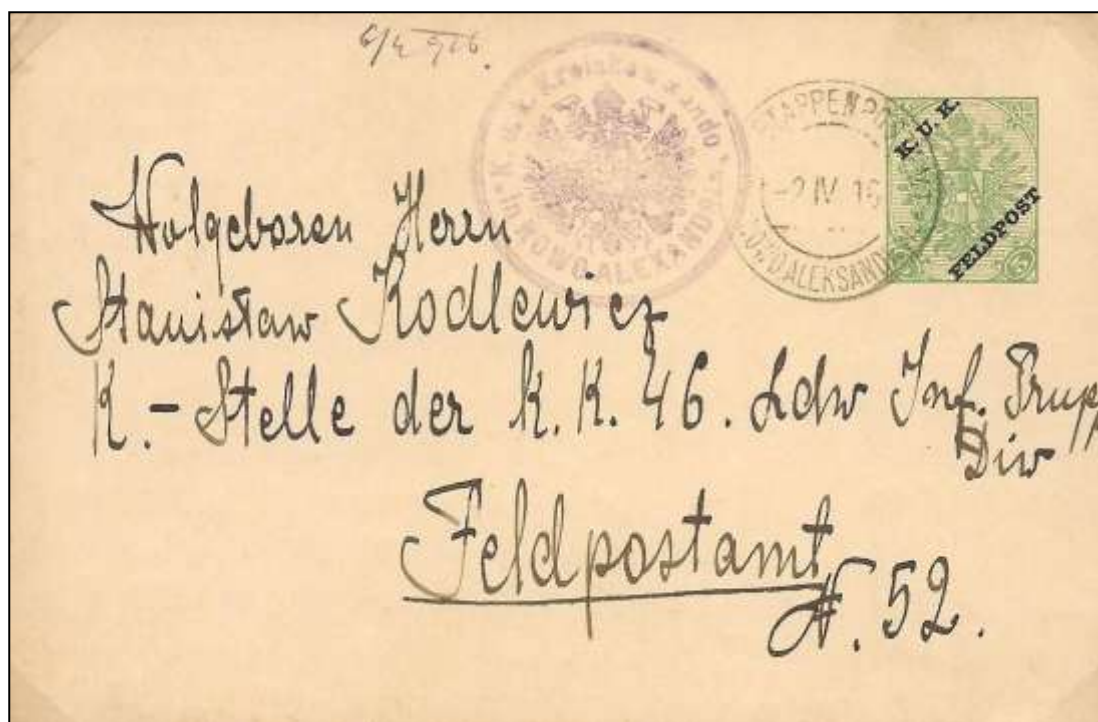 6/4 916.
K. u. k. Kreiskommando
NOWO ALEXANDR
ETAPPENPO
-2 IV 16
NOWO ALEKSAND
K. U. K.
FELDPOST
5
Wolgeboren Herrn
Stanisław Kodlewicz
K. - Stelle der k. k. 46. Ldw Inf. Trupp
Div
Feldpostamt
N. 52.